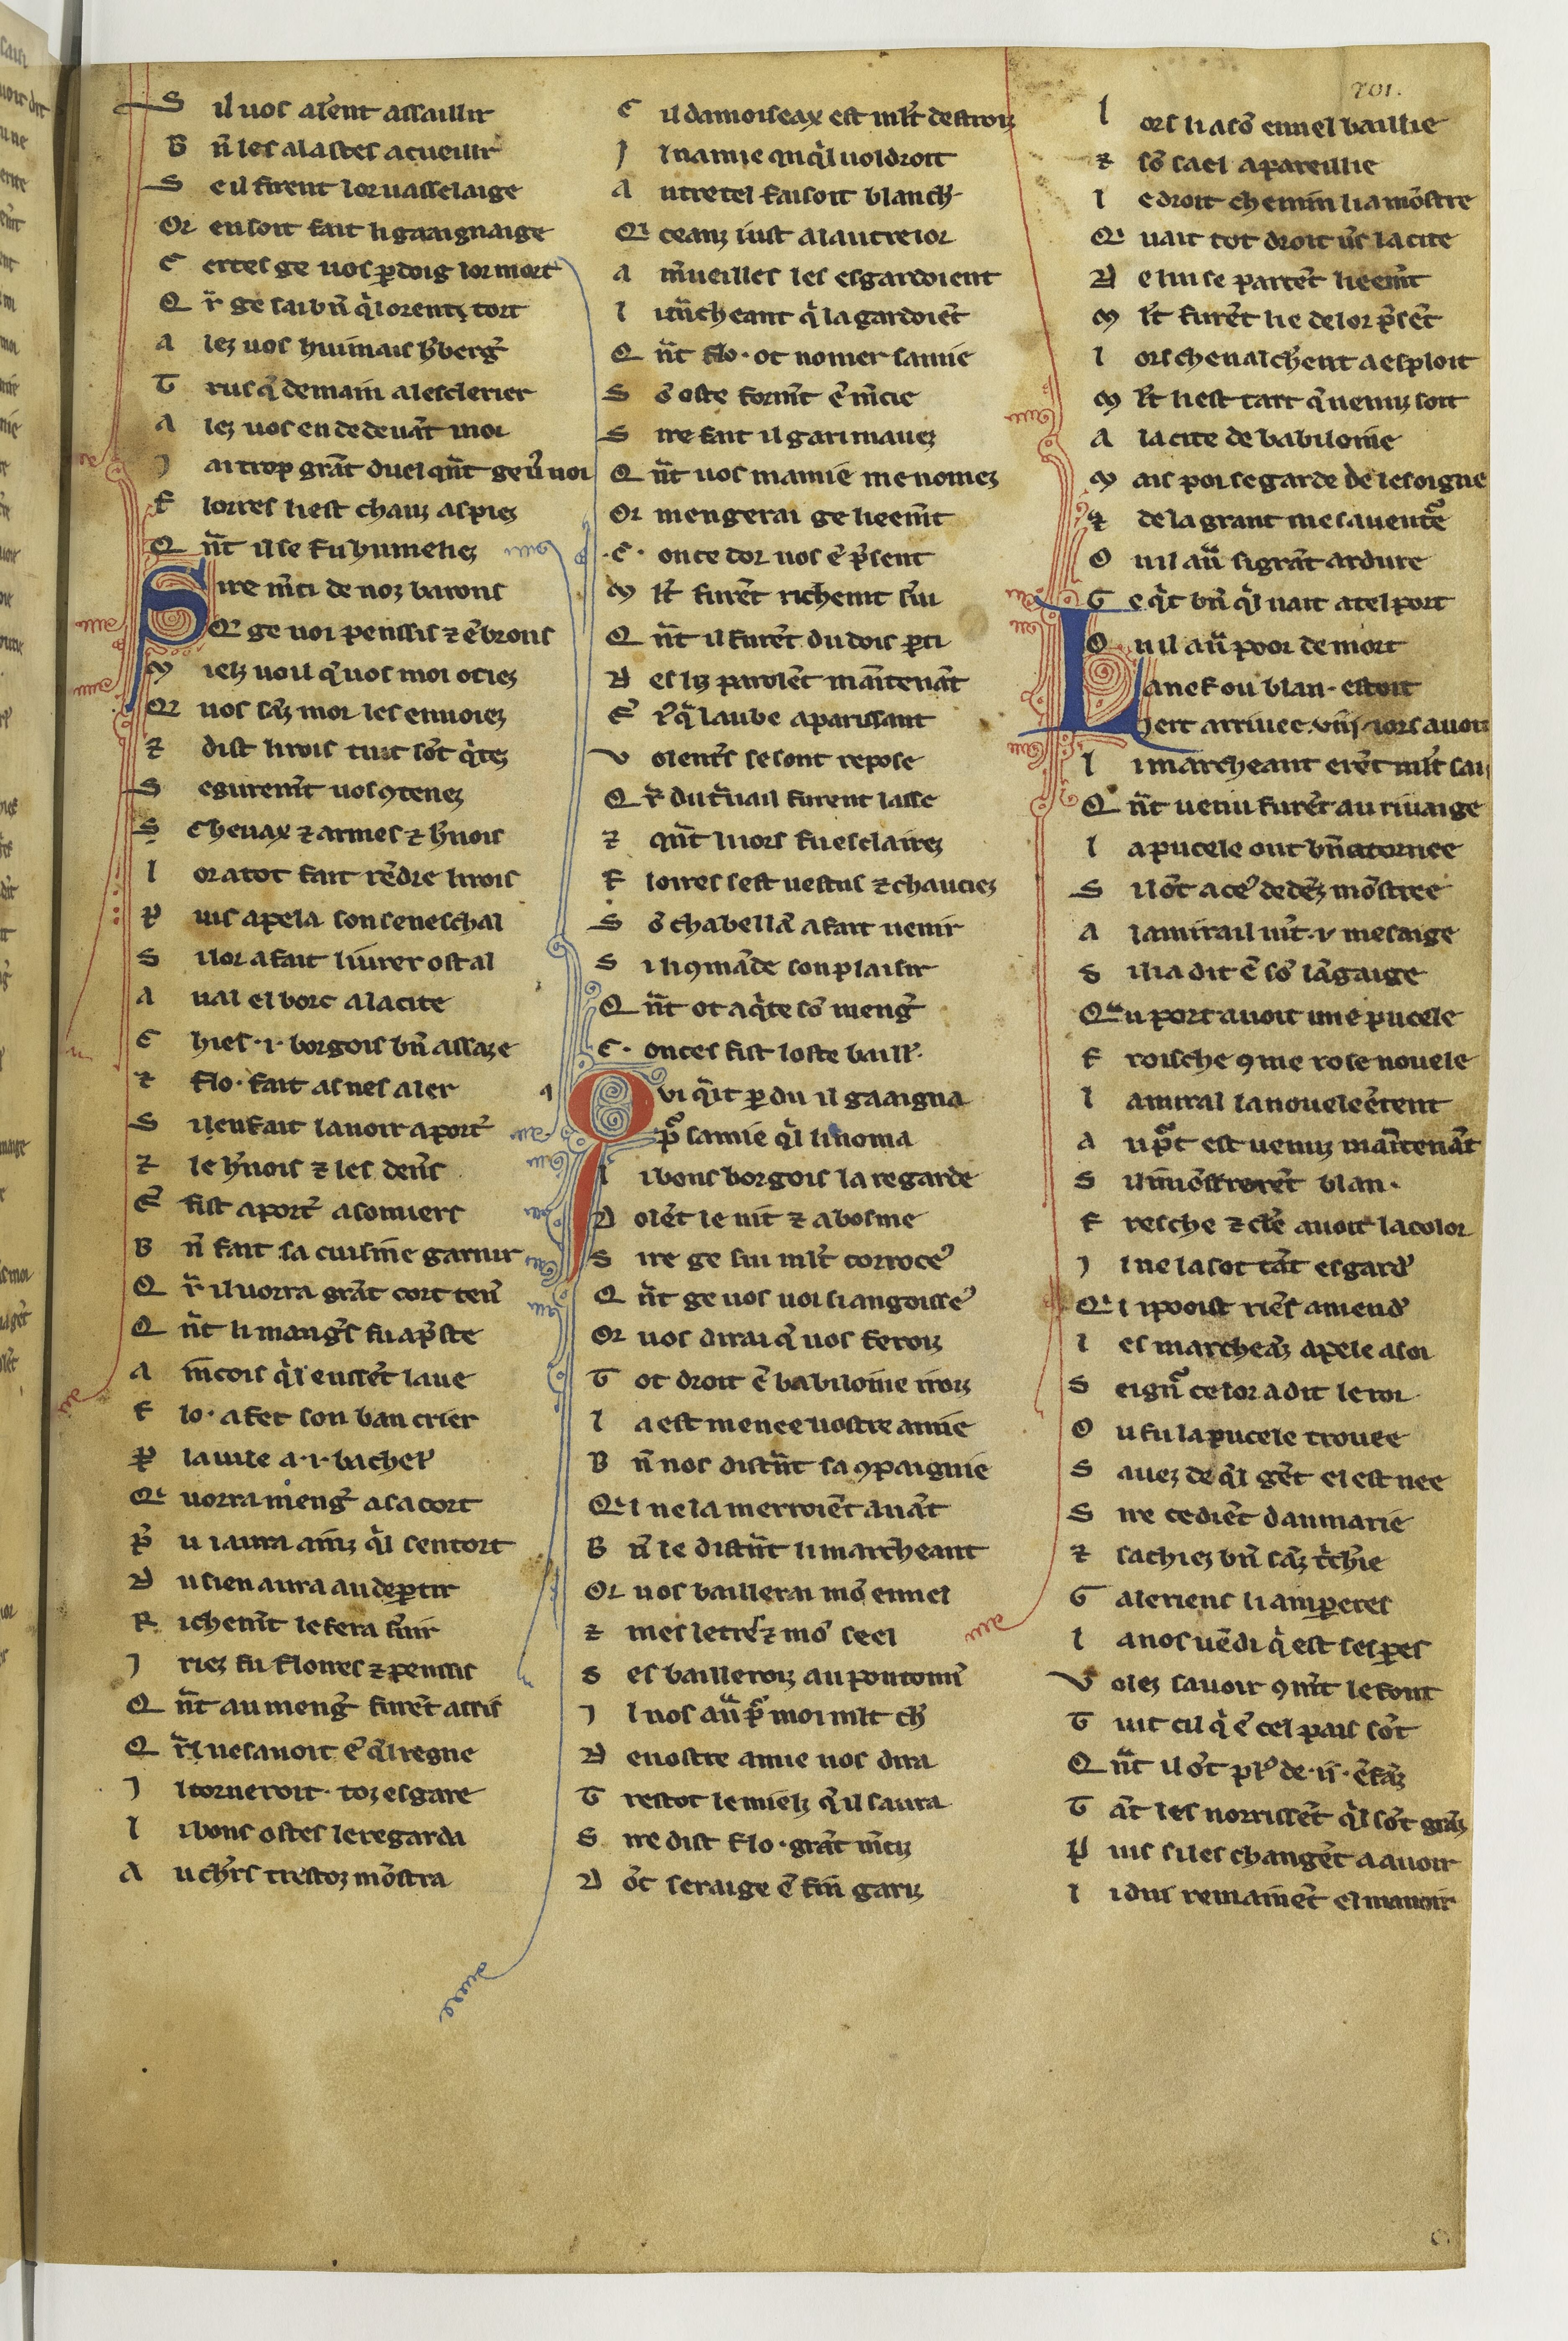 701.
S il uos aẜent assaillir
B n̄ les alastes acueillir
S e il firent lor uasselaige
Or en soit fait li gaaignaige
C ertes ge uos ꝑdoig lor mort
Q r̄ ge sai bn̄ q̾l orent tort
A lez uos huimais h̾berg̾
T rusq̾ demain a lesclerier
A lez uos en dedeuāt moi
J ai trop grāt duel qn̄t ge u̾ uoi
F lorres li est chauz as piez
Q n̄t il se fu humeliez
S ire m̄ci de noz barons
Q̾ ge uoi penssis ⁊ ēbrons
M ielz uoil q̾ uos moi ociez
Q̾ uos sāz moi les enuoiez
⁊ dist li rois tuit sōt q̾tes
S egurem̄t uos ꝯtenez
S cheuax ⁊ armes ⁊ h̾nois
L or a tot fait rēdre li rois
P uis apela son seneschal
S i lor a fait liurer ostal
A ual el borc a la cite
C hies .i. borgois bn̄ assaze
⁊ flo. fait as nes aler
S i en fait lauoir aport̾
⁊ le h̾nois ⁊ les den̄s
E̾ fist aport̾ a somiers
B n̄ fait sa cuisine garnir
Q r̄ il uorra grāt cort ten̾
Q n̄t li mang̾s fu ap̾ste
A incois q̾l eussēt laue
F lo. a fet son ban crier
P̱ la uile a .i. bachel̾
Q̾ uorra meng̾ a sa cort
P̾ u i aura ainz q̾l sentort
D u sien aura au deꝑtir
R ichem̄t le fera s̾uir
J riez fu flores ⁊ penssis
Q n̄t au meng̾ furēt assis
Q r̄ il ne sauoit ē q̾l regne
J l torneroit toz esgare
L i bons ostes le regarda
A u ch̾rs trestoz mōstra
C il damoiseax est ml̄t destroiz
J l namie qnq̾l uoi droit
A utretel faisoit blanch̾
Q̾ ceanz iust a lautre ior
A m̾ueilles les esgardoient
L i m̄cheant q̾ la gardoiēt
Q n̄t flo. ot nomer samie
S ō oste form̄t ē m̄cie
S ire fait il gari mauez
Q n̄t uos mamie me nomez
Or mengerai ge lieem̄t
.C. once dor uos ē p̾sent
M l̄t furēt richemt s̾ui
Q n̄t il furēt du dois ꝑti
D es liz parolēt maītenāt
E̾ p̾q̾ laube aparissant
V olent̾s se sont repose
Q r̄ du t̾uail furent lasse
⁊ qn̄t li iors fu esclairez
F loires sest uestus ⁊ chauciez
S ō chābellā a fait uenir
S i li ꝯmāde son plaisir
Q n̄t ot aq̾te sō meng̾
.C. onces fist loste baill̾.
Qvi q̾it ꝑdu il gaaigna
p̾ samie q̾l li noma
L i bons borgois la regarde
D olēt le uit ⁊ abosme
S ire ge sui ml̄t corroce̾
Q n̄t ge uos uoi si angoisse̾
Or uos dirai q̾ uos feroiz
T ot droit ē babiloine iroiz
L a est menee uostre amie
B n̄ nos distrēt sa ꝯpaignie
Q̾l ne la merroiēt auāt
B n̄ le distrēt li marcheant
Or uos baillerai mō ennel
⁊ mes letres ⁊ mō seel
S es bailleroiz au pontoni̾
J l uos au̾ p̾ moi ml̄t ch̾
D e uostre amie uos dira
T restot le mielz q̾ il saura
S ire dist flo. grāt m̄ciz
D ōc seraige ē fin gariz
L ors li a sō ennel baillie
⁊ sō sael apareillie
L e droit chemin li a mōstre
Q̾ uait tot droit u̾s la cite
D e lui se partēt lieem̄t
M l̄t furēt lie de lor p̾sēt
L ors cheualchent a esploit
M l̄t li est tart q̾ uenuz soit
A la cite de babiloine
M ais poi se garde de lesoigne
⁊ de la grant mesauent̾e
O u il au̾ si grāt ardure
C e q̾t bn̄ q̾l uait a tel port
O u il au̾ poor de mort
La nef ou blan. estoit
iert arriuee .viij. iors auoit
L i marcheant erēt ml̄t sai
Q n̄t uenu furēt au riuaige
L a pucele ont bn̄ atornee
S i lōt a ce̾ dedēz mōstree
A lamirail uīt .v. mesaige
S i li a dit ē sō lāgaige
Qau port auoit une pucele
F roische ꝯme rose nouele
L amiral la nouele ētent
A u p̾t est uenuz maītenāt
S i li mōstrerēt blan.
F resche ⁊ cle̾ auoit la color
J l ne la sot tāt esgard̾
Q̾l i pooist riēs amend̾
L es marcheāz apele a soi
S eign̾ce lor a dit le roi
O u fu la pucele trouee
S auez de q̾l gēt el est nee
S ire ce diēt daumarie
⁊ sachiez bn̄ sāz t̾ch̾ie
G alerienz li amꝑeres
L a nos uēdi q̾ est ses ꝑes
V olez sauoir ꝯm̄t le font
T uit cil q̾ ē cel pais sōt
Q n̄t il ōt pl̾ de .ii. ēfāz
T āt les norrissēt q̾l sōt grāz
P uis si les changēt a auoir
L i dui remainēt el manoir